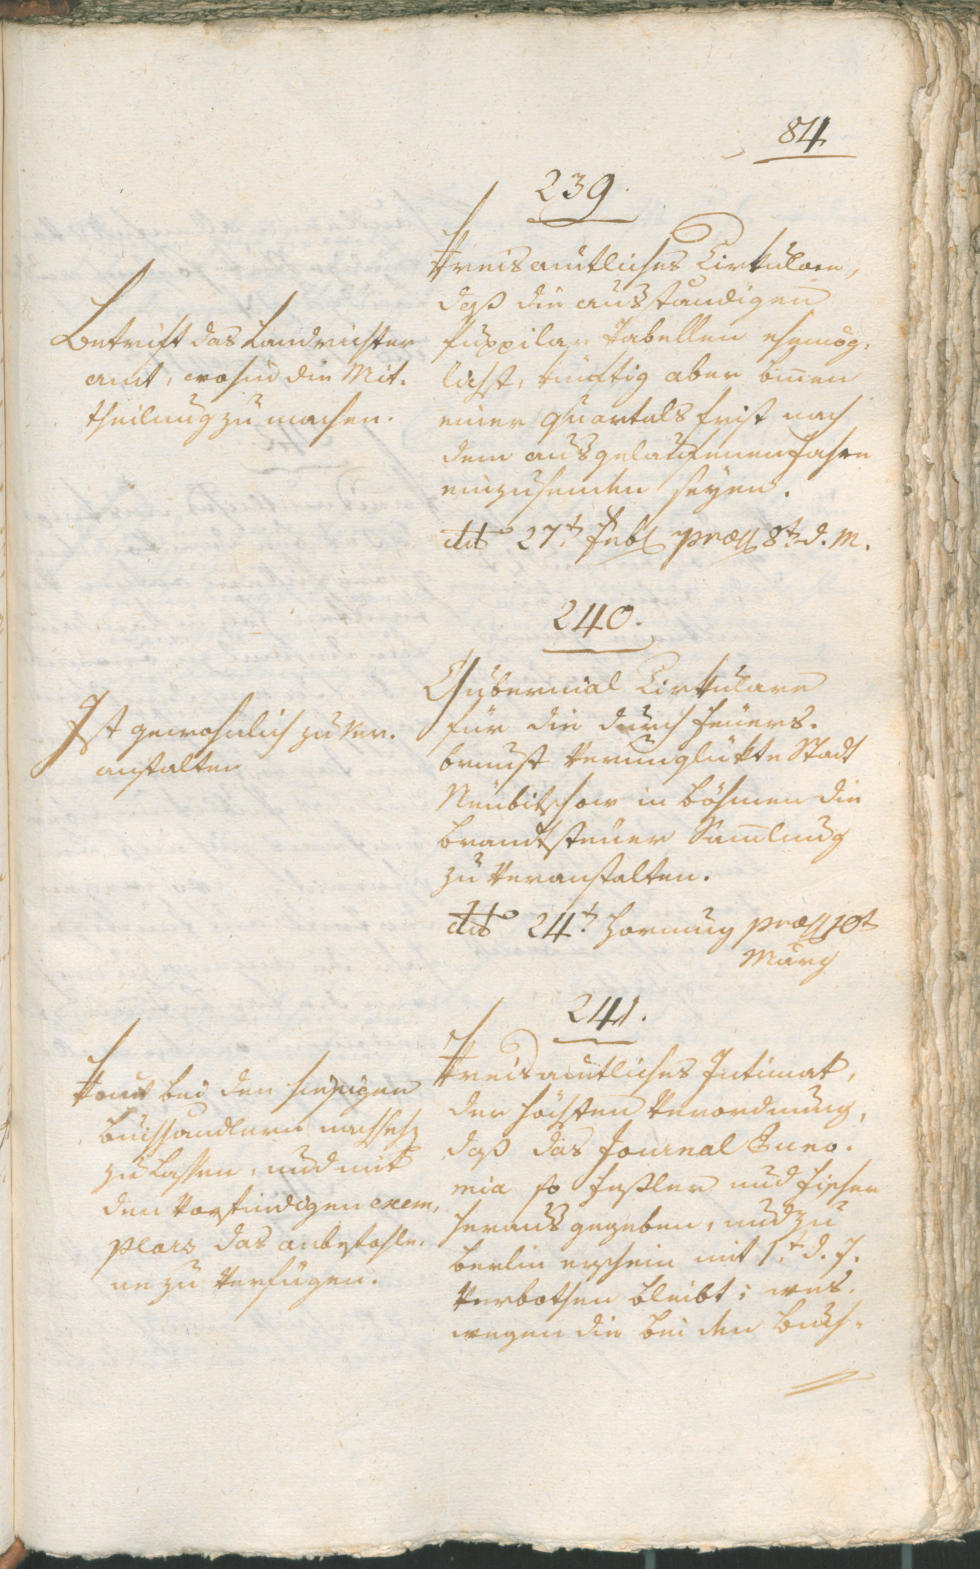 84
239.
Kreisämtliches Cirkulare,
daß die ausständigen
Puppilar Tabellen ehemög-
lichst, künftig aber binnen
einer Quartals frist nach
dem ausgelaufenen Jahre
einzusenden seyen.
ddto 27t Febr. præs. 8t d. M.
Betrift das Landrichter
amt, wohin die Mit-
theilung zu machen.
240.
Gubernial Cirkulare
für die durch Feuers-
brunst verunglükte Stadt
Neubitschow in Böhmen die
Brandsteuer Sammlung
zu veranstalten.
ddto 24t Hornung præs. 10t
März
Ist gewohnlich zu ver-
anstalten
241.
Kreisämtliches Intimat,
der höchsten Verordnung,
daß das Journal Euno-
mia so Feßler und Fischer
herausgegeben, und zu
Berlin erschein mit 1t d. J.
verbothen bleibt; wes-
wegen die bei den Buch-
Komt bei den hiesigen
Buchhandlern nachseh
zu lassen, und mit
den vorfindigen exem-
plars das anbefohle-
ne zu verfügen.